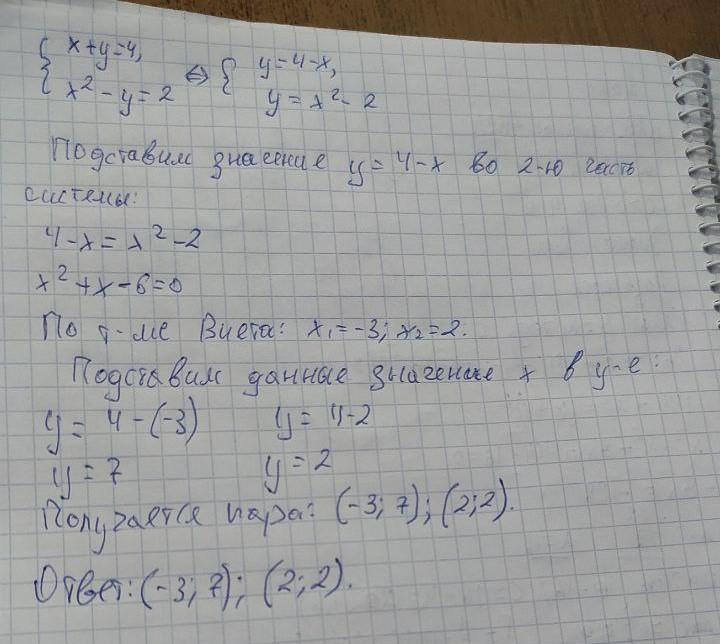 { x+y=4, ⇔ { y=4-x,
x²-y=2 y=x²-2
Подставим значение y=4-x во 2-ю часть
системы:
4-x=x²-2
x²+x-6=0
По т-ме Виета: x₁=-3; x₂=2.
Подставим данные значение x в у-е:
y= 4-(-3) y=4-2
y=7 y=2
Получается пара: (-3; 7); (2;2).
Ответ: (-3; 7); (2; 2).